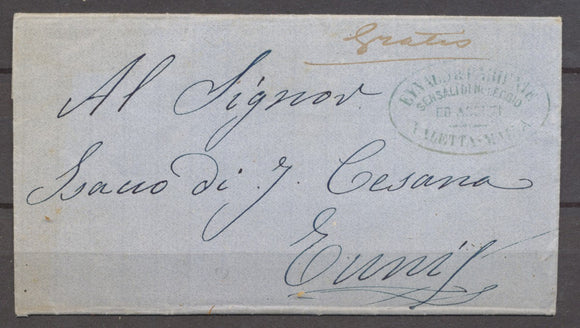 Gratis
SENSALI DI NOLEGGIO
ED AGENTI
VALETTA-MALTA
Al Signor
Isacco di J. Cesana
Tunis